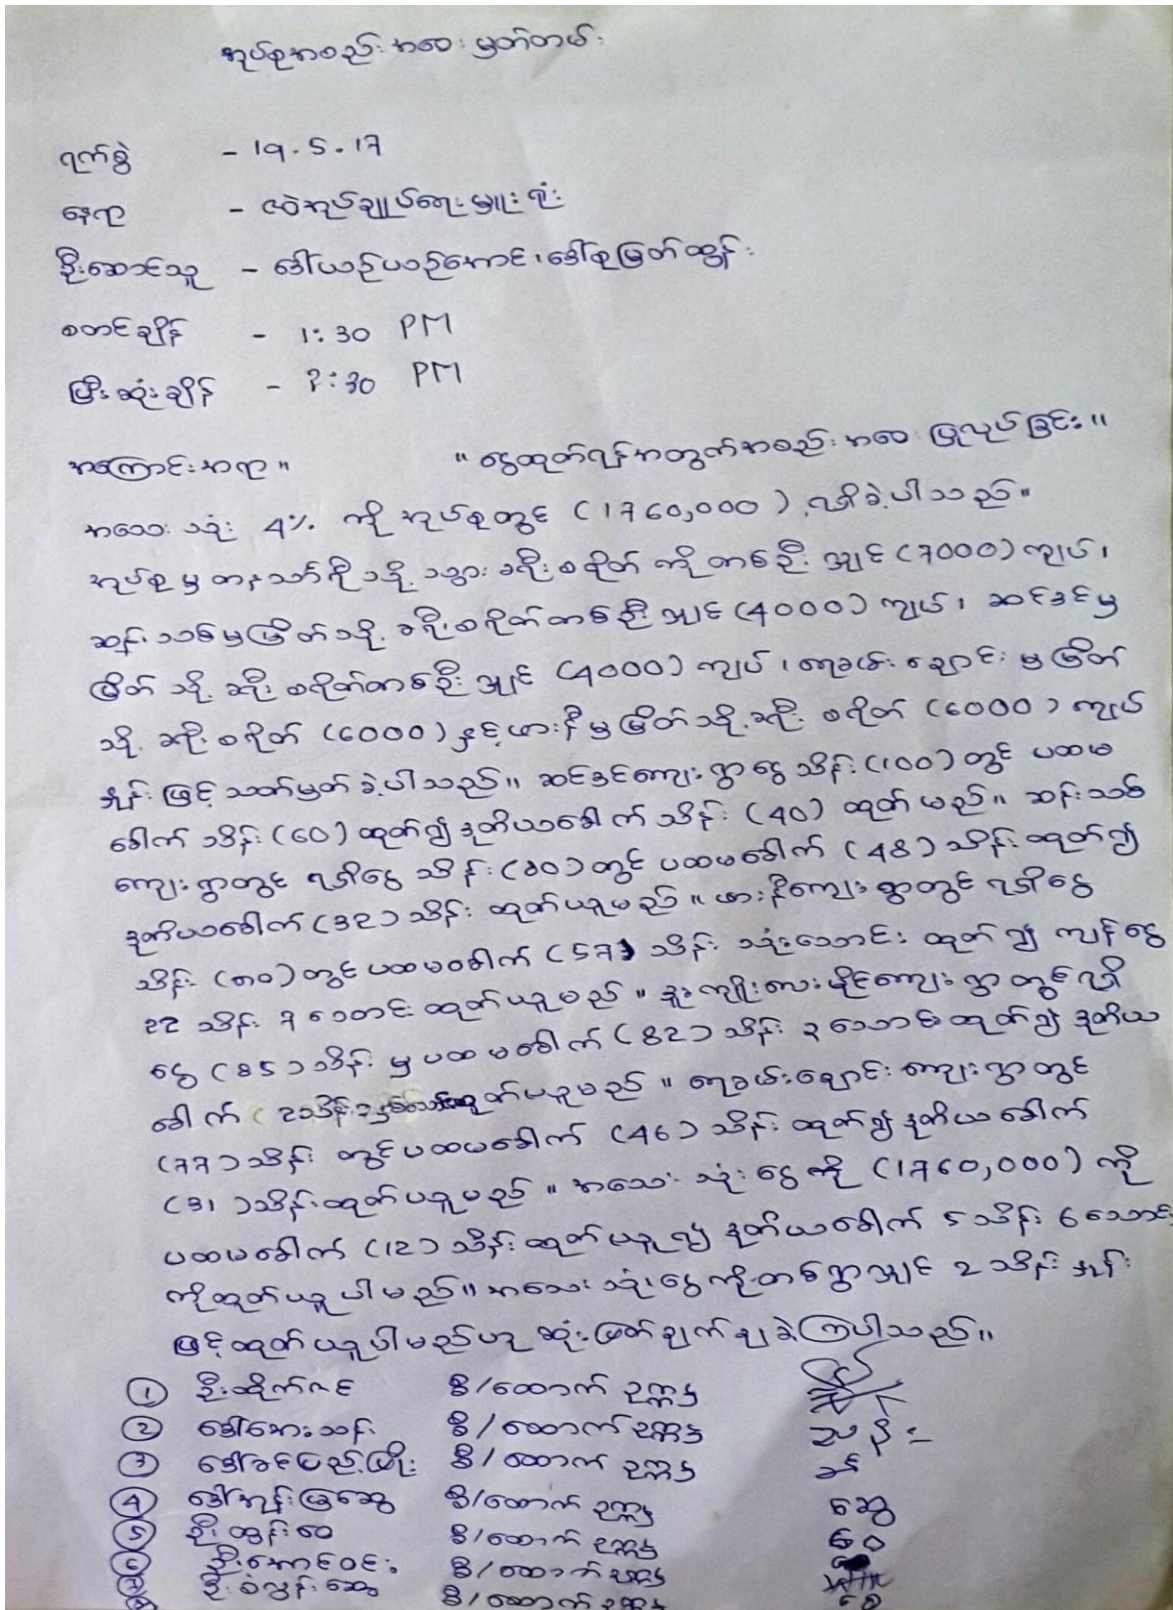 အုပ်စုအစည်းအဝေး မှတ်တမ်း
ရက်စွဲ - 19.5.17
နေရာ - ဇုပ်ချုပ်ရေးမှူးရုံး
ဦးဆောင်သူ - ဒေါ်ယဉ်ယဉ်အောင်၊ ဒေါ်စုမြတ်ထွန်း
စတင်ချိန် - 1:30 PM
ပြီးဆုံးချိန် - :30 PM
အကြောင်းအရာ။ "ငွေထုတ်ရန်အတွက်အစည်းအဝေး ပြုလုပ်ခြင်း။
အသေးသုံး 4% ကို အုပ်စုတွင် (1760,000) ရရှိခဲ့ပါသည်။
အုပ်စုမှ တနင်္သာရီသို့ သွား ခရီးစရိတ် ကို တစ်ဦး လျှင် (7000) ကျပ်၊
ဆန်းသစ်မှမြိတ်သို့ ခရီးစရိတ်တစ်ဦးလျှင် (4000) ကျပ်၊ ဆင်ဒင်မှ
မြိတ် သို့ ခရီး စရိတ်တစ်ဦး လျှင် (4000) ကျပ်၊ ရေခမ်း ချောင်း မှ မြိတ်
သို့ ခရီး စရိတ် (6000) နှင့် ဖားနီမှ မြိတ်သို့ ခရီး စရိတ် (6000) ကျပ်
နှုန်း ဖြင့် သတ်မှတ် ခဲ့ပါသည်။ ဆင်ဒင်ကျေးရွာ ငွေ သိန်း (100) တွင် ပထမ
ခေါက် သိန်း (60) ထုတ်၍ ဒုတိယခေါက် သိန်း (40) ထုတ် မည်။ ဆန်းသစ်
ကျေးရွာတွင် ရရှိငွေ သိန်း (80) တွင် ပထမခေါက် (48) သိန်း ထုတ်၍
ဒုတိယခေါက် (32) သိန်း ထုတ်ယူမည်။ ဖားနီကျေးရွာတွင် ရရှိငွေ
သိန်း (80) တွင် ပထမခေါက် (57) သိန်း သုံးသောင်း ထုတ်၍ ကျန်ငွေ
22 သိန်း 7 သောင်း ထုတ်ယူမည်။ ဒူးကျိုးလေးမိုင်ကျေးရွာ တွင်ရရှိ
ငွေ (85) သိန်း မှ ပထမခေါက် (82) သိန်း ၃ သောင်းထုတ်၍ ဒုတိယ
ခေါက် (2သိန်း ထုတ်ယူမည်။ ရေခမ်းချောင်း ကျေးရွာတွင်
(77) သိန်း တွင် ပထမခေါက် (46) သိန်း ထုတ်၍ ဒုတိယ ခေါက်
(31) သိန်းထုတ်ယူမည်။ အသေးသုံး ငွေကို (1760,000) ကို
ပထမခေါက် (12) သိန်း ထုတ်ယူ၍ ဒုတိယခေါက် 5 သိန်း 6 သောင်း
ကိုထုတ်ယူပါမည်။ အသေးသုံးငွေကို တစ်ရွာလျှင် 2 သိန်း နှုန်း
ဖြင့်ထုတ်ယူပါမည်ဟု ဆုံးဖြတ်ချက်ချခဲ့ကြပါသည်။
① ဦးထိုက်ဇင် စီ/ထောက် ဥက္ကဋ္ဌ
② ဒေါ်အေးသန်း စီ/ထောက် ဥက္ကဋ္ဌ
③ ဒေါ်ခင်ပြည့်ဖြိုး စီ/ထောက် ဥက္ကဋ္ဌ
④ ဒေါ်အုန်းမြဆွေ စီ/ထောက် ဥက္ကဋ္ဌ ဆွေ
⑤ ဦးထွန်းဝေ စီ/ထောက် ဥက္ကဋ္ဌ ဝေ
⑥ ဦးအောင်ဝင်း စီ/ထောက် ဥက္ကဋ္ဌ
⑦ ဦးစံလွန်းဆွေ စီ/ထောက် ဥက္ကဋ္ဌ